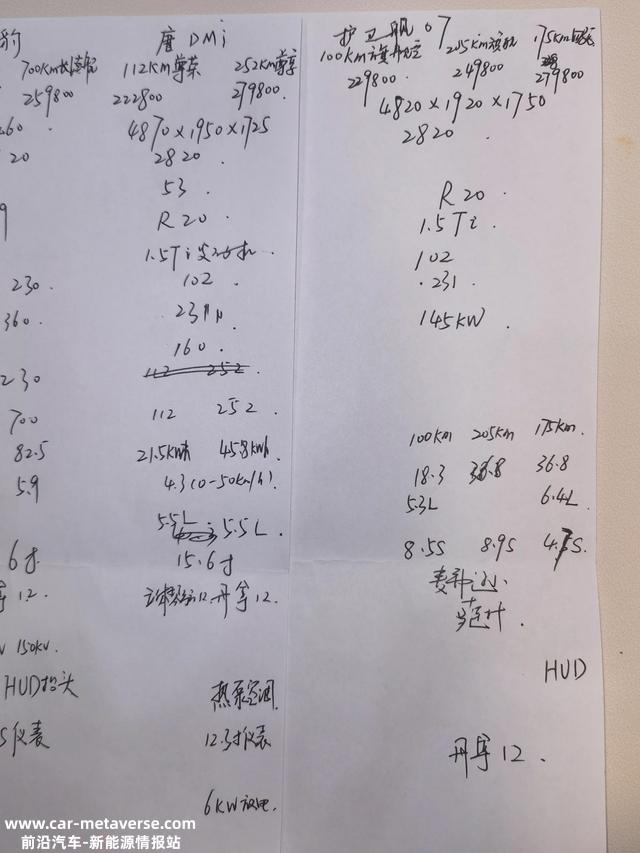 唐 DMi
护卫舰 07
112KM尊荣 252KM尊享
100KM旗舰 205KM旗舰 175KM
259800
222800 279800.
229800 249800 279800
4870×1950×1725
4820×1920×1750
20
2820.
2820.
53.
R20.
R20.
1.5Ti发动机.
1.5Ti.
230.
102.
102
360.
231
.231
160.
145KW.
230
112 252.
700
112 252.
100km 205km 175km.
82.5
21.5KWh 45.8KWh.
18.3 36.8 36.8
5.9
4.3(0-50Km/h).
5.3L 6.4L
5.5L 5.5L.
6寸.
15.6寸
8.5S 8.9S 4.7S.
12.
12.丹拿12.
麦弗逊.
150KV.
HUD抬头
热泵空调
HUD
仪表
12.3寸仪表
丹拿12.
6KW放电.
www.car-metaverse.com
前沿汽车-新能源情报站